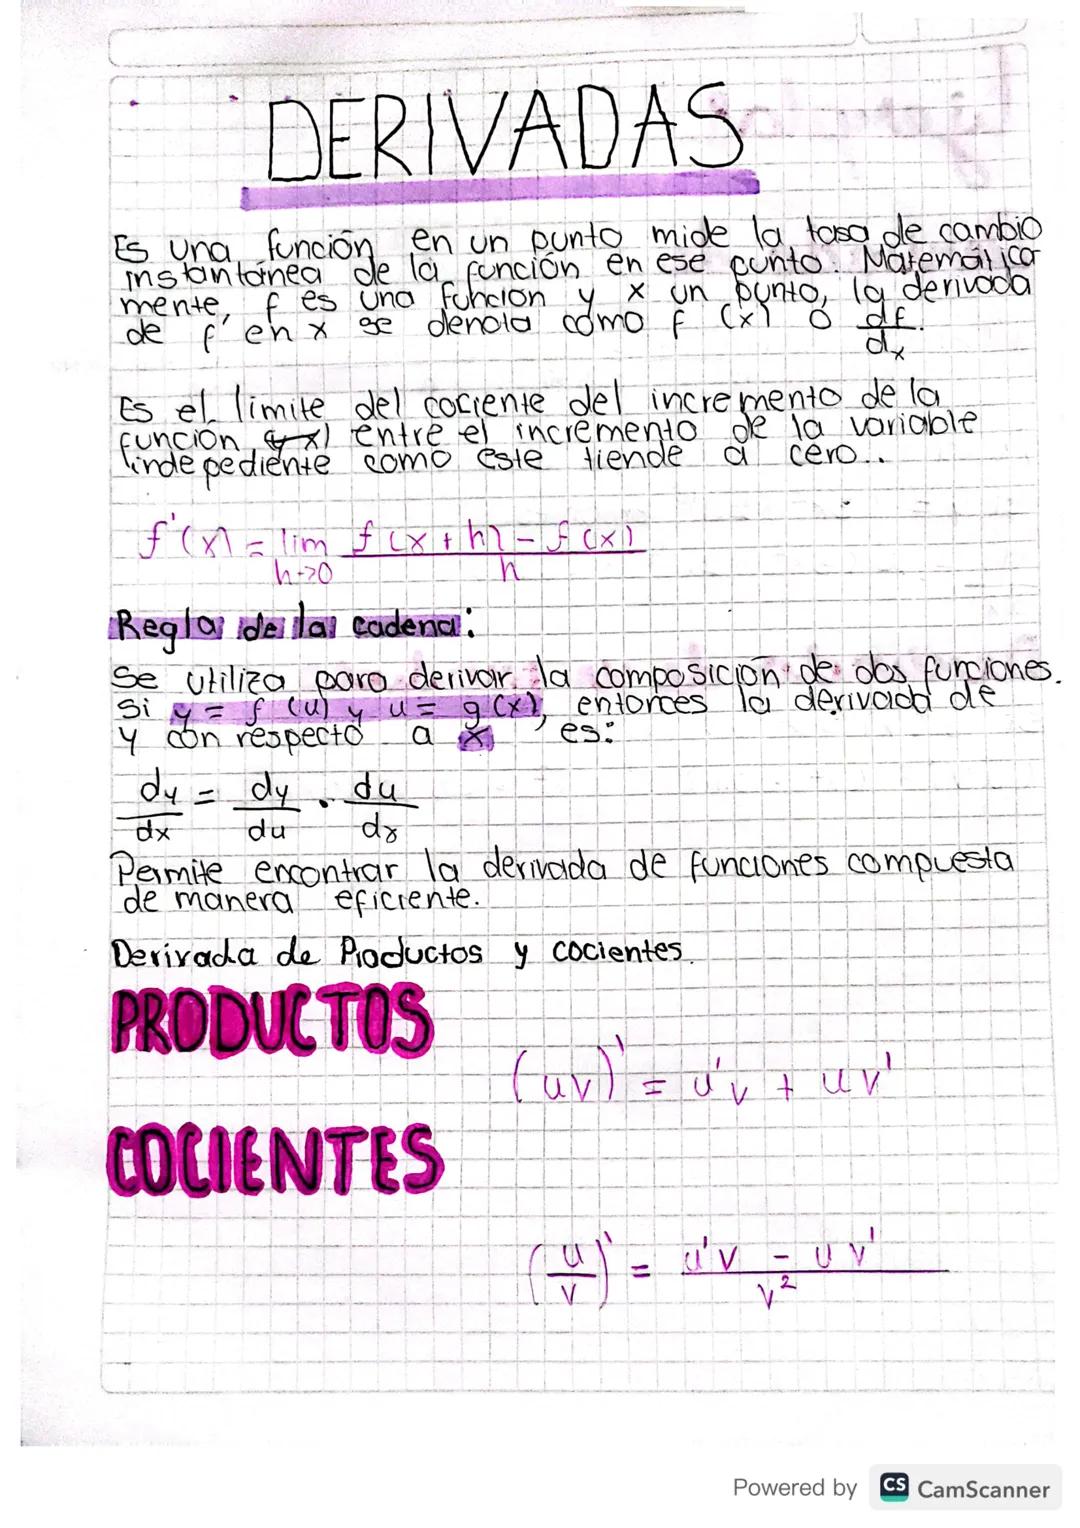 DERIVADAS
Es una función en un punto mide la tasa de cambio
instantánea de la función en ese punto. Matemática
mente, f es una función y x un punto, la derivada
de f' en x se denota como f (x) o df/dx.
Es el limite del cociente del incremento de la
función entre el incremento de la variable
indepediente como este tiende a cero..
f'(x) = lim h->0 f(x+h) - f(x) / h
Regla de la cadena:
Se utiliza para derivar la composición de dos funciones.
Si y = f (u) y u = g(x), entonces la derivada de
y con respecto a x, es:
dy/dx = dy/du . du/dx
Permite encontrar la derivada de funciones compuesta
de manera eficiente.
Derivada de Productos y cocientes.
PRODUCTOS
(uv)' = u'v + uv'
COCIENTES
(u/v)' = u'v - uv' / v²
Powered by CS CamScanner